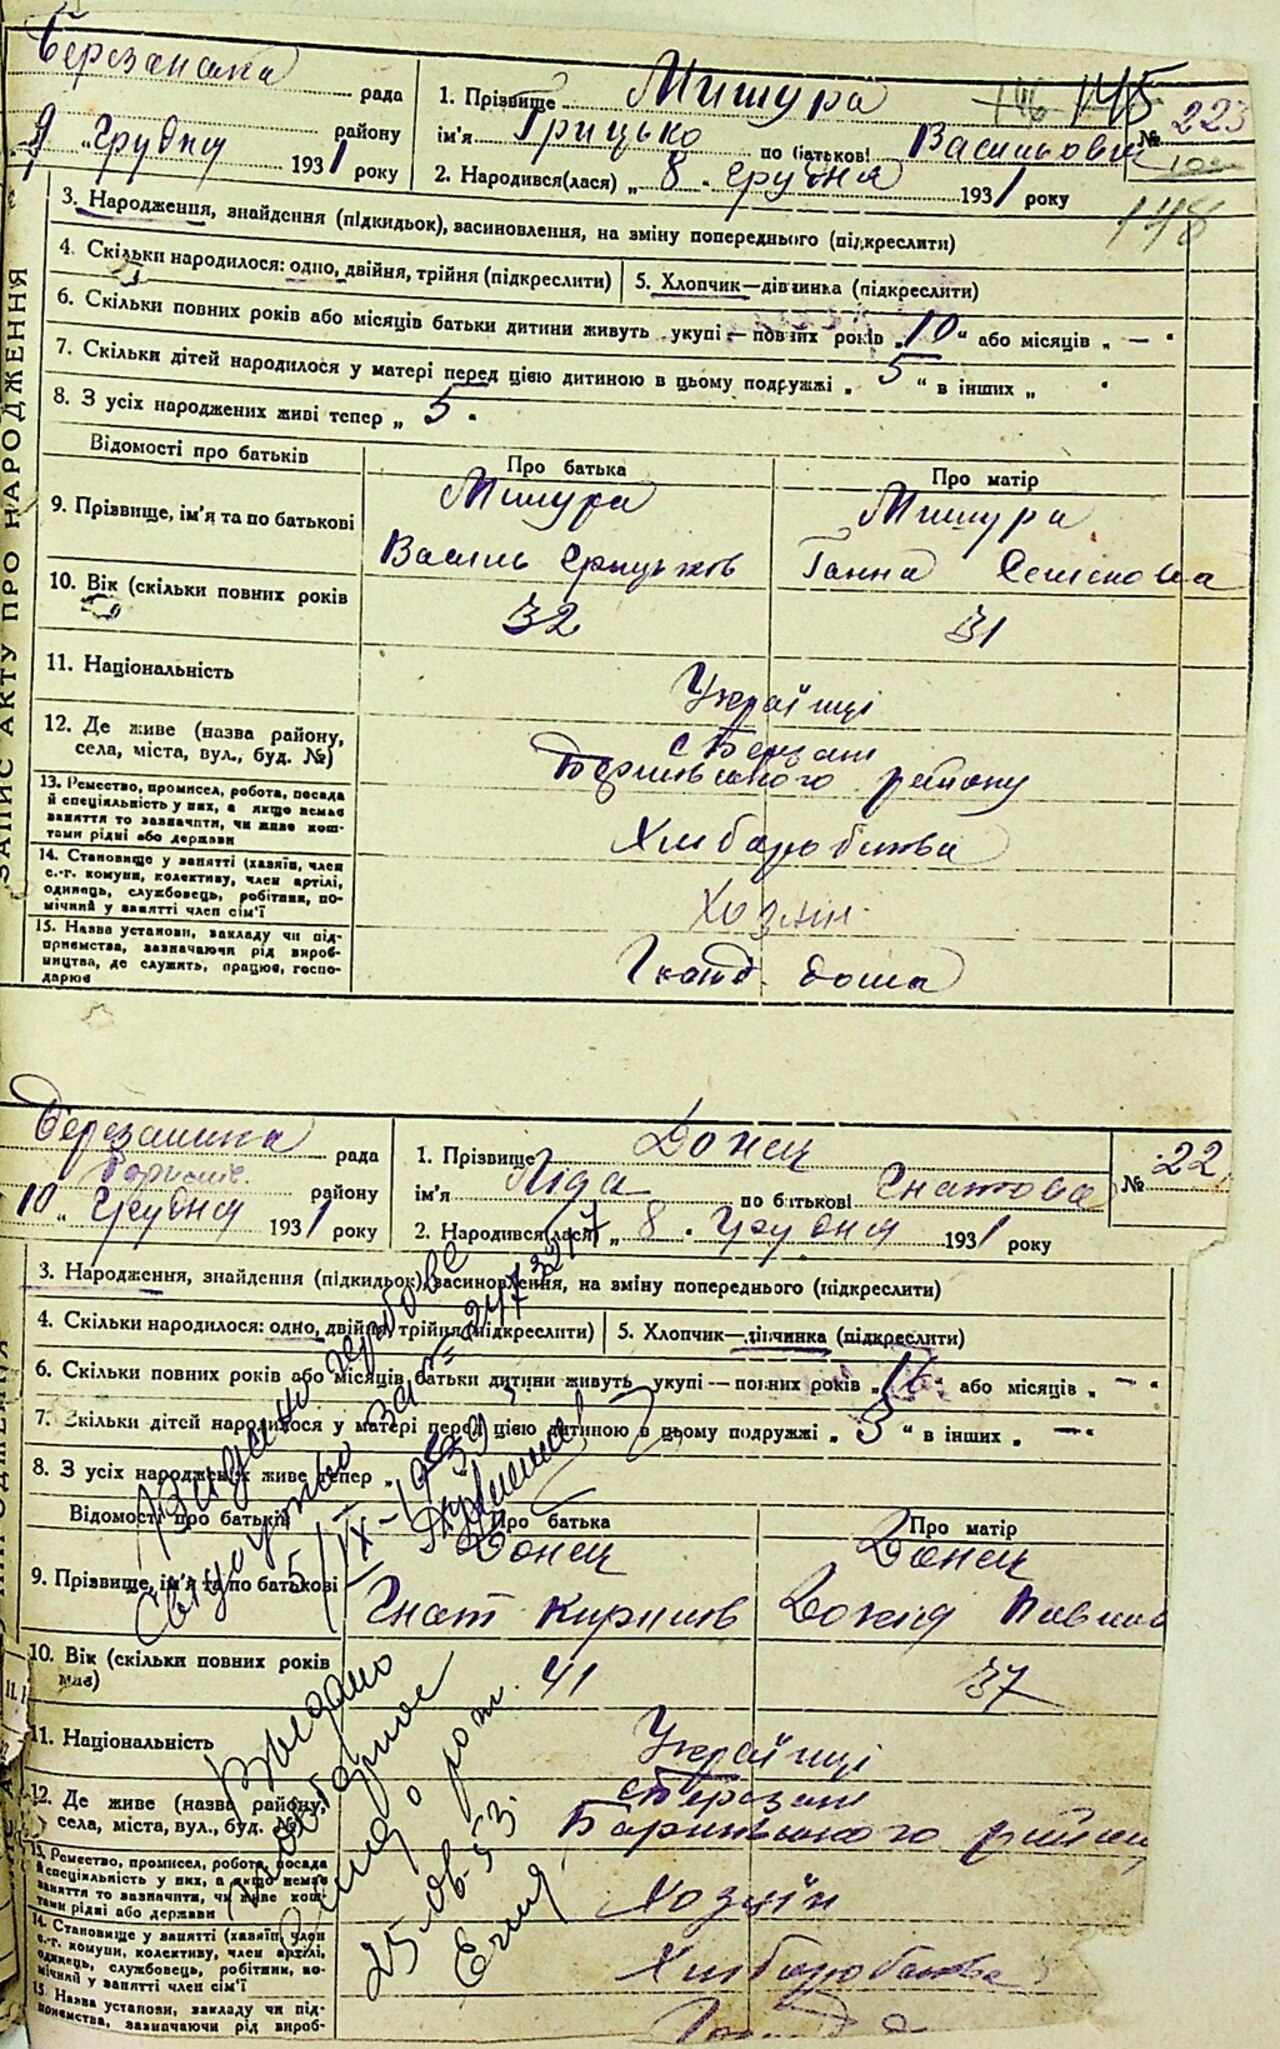 Березанська рада
району
9 „ Грудня 1931 року
1. Прізвище Мишура
ім'я Грицько по батькові Васильович
2. Народився(лася) „ 8 . Грудня 1931 року
146 145
№ 223
148
ЗАПИС АКТУ ПРО НАРОДЖЕННЯ
3. Народження, знайдення (підкидьок), васиновлення, на зміну попереднього (підкреслити)
4. Скільки народилося: одно, двійня, трійня (підкреслити)
5. Хлопчик—дівчинка (підкреслити)
6. Скільки повних років або місяців батьки дитини живуть укупі — повних років „ 10 “ або місяців „ — “
7. Скільки дітей народилося у матері перед цією дитиною в цьому подружжі „ 5 “ в інших „ “
8. З усіх народжених живі тепер „ 5 “
Відомості про батьків
Про батька
Про матір
9. Прізвище, ім'я та по батькові
Мишура
Мишура
Василь Грицьков
Ганна Семенова
10. Вік (скільки повних років
32
31
11. Національність
Українці
12. Де живе (назва району, села, міста, вул., буд. №)
с Березані
Баришівського району
13. Ремество, промисел, робота, посада
й спеціяльність у них, а якщо немає
заняття то зазначити, чи живе кош-
тами рідні або держави
Хліборобство
14. Становище у занятті (хазяїн, член
с.-г. комуни, колективу, член артілі,
одинець, службовець, робітник, по-
мічний у занятті член сім'ї
Хозяїн
15. Назва установи, закладу чи під-
приємства, зазначаючи рід вироб-
ництва, де служить, працює, госпо-
дарює
дома
Березанська рада
Баришів. району
10 „ Грудня 1931 року
1. Прізвище Донец
ім'я Ліда по батькові Гнатова
2. Народився(лася) „ 8 . Грудня 1931 року
№ 22
3. Народження, знайдення (підкидьок), васиновлення, на зміну попереднього (підкреслити)
4. Скільки народилося: одно, двійня, трійня (підкреслити)
5. Хлопчик—дівчинка (підкреслити)
6. Скільки повних років або місяців батьки дитини живуть укупі — повних років „ 16 “ або місяців „ — “
7. Скільки дітей народилося у матері перед цією дитиною в цьому подружжі „ 3 “ в інших „ — “
8. З усіх народжених живе тепер „
Відомості про батьків
Про батька
Про матір
9. Прізвище, ім'я та по батькові
Донец
Донец
Гнат Кирилів
Докія Павлив
10. Вік (скільки повних років
має)
41
37
11. Національність
Українці
12. Де живе (назва району,
села, міста, вул., буд. №)
с Березані
Баришівського району
13. Ремество, промисел, робота, посада
й спеціяльність у них, а якщо немає
заняття то зазначити, чи живе кош-
тами рідні або держави
Хозяїн
14. Становище у занятті (хазяїн, член
с.-г. комуни, колективу, член артілі,
одинець, службовець, робітник, по-
мічний у занятті член сім'ї
Хліборобство
15. Назва установи, закладу чи під-
приємства, зазначаючи рід вироб-
Видано гербове
свідоцтво за №
5/IX-1939
Выдано
повторное
о рож.
25-08-53.